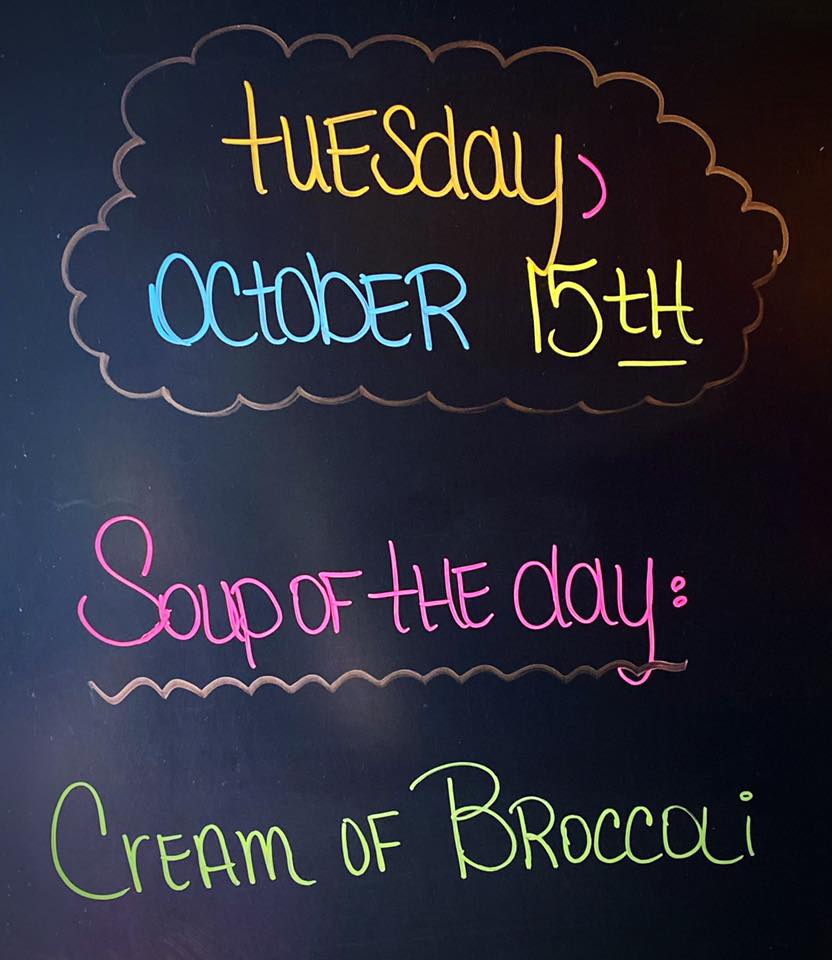 tuesday,
October 15th
Soup of the day:
Cream of Broccoli